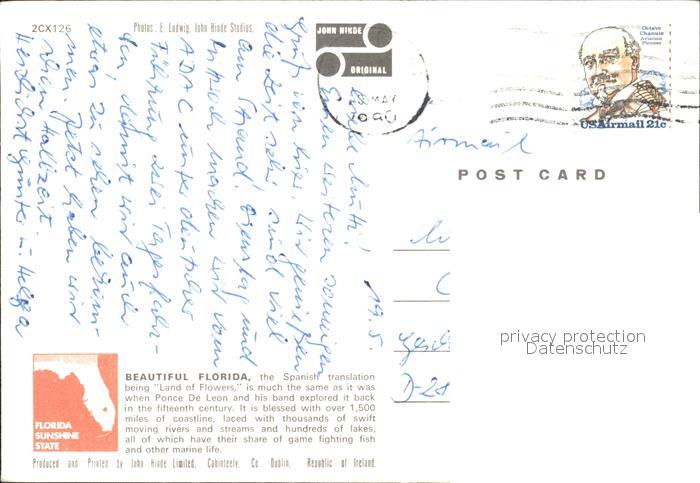 2CX126
Photos: E. Ludwig, John Hinde Studios.
JOHN HINDE
ORIGINAL
MAY
1990
Octave
Chanute
Aviation
Pioneer
USAirmail 21c
Airmail
POST CARD
19.5.
Liebe Mutti!
Einen weiteren sonnigen
Gruß von hier. Wir genießen
die Zeit sehr, sind viel
am Strand. Dienstag und
Mittwoch machen wir vom
ADAC unter deutscher
Führung zwei Tagesfahr-
ten, damit wir auch
etwas zu sehen bekom-
men. Jetzt haben wir
schon Halbzeit.
Herzlichst Günter u. Helga
D-28
privacy protection
Datenschutz
FLORIDA
SUNSHINE
STATE
BEAUTIFUL FLORIDA, the Spanish translation
being "Land of Flowers," is much the same as it was
when Ponce De Leon and his band explored it back
in the fifteenth century. It is blessed with over 1,500
miles of coastline, laced with thousands of swift
moving rivers and streams and hundreds of lakes,
all of which have their share of game fighting fish
and other marine life.
Produced and Printed by John Hinde Limited, Cabinteely, Co. Dublin, Republic of Ireland.